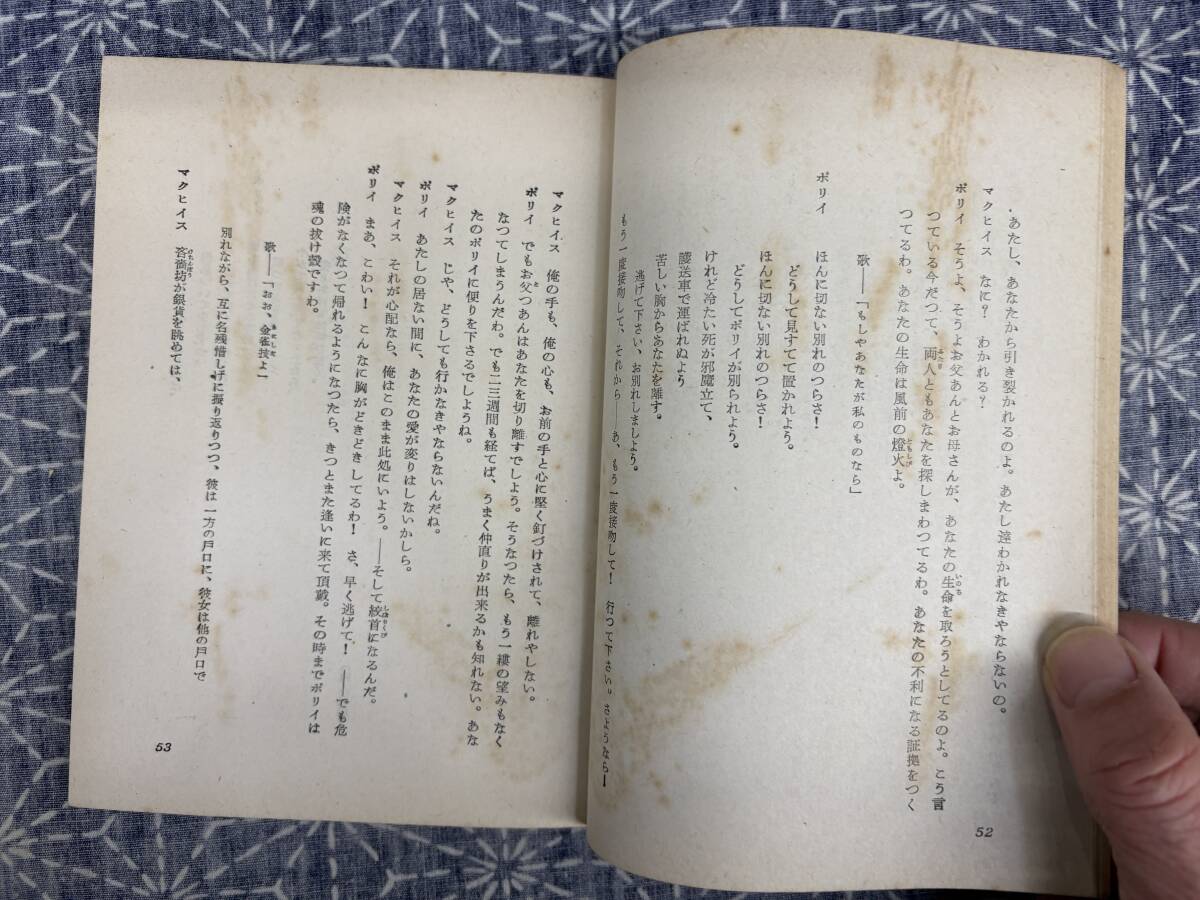 あたし、あなたから引き裂かれるのよ。あたし達わかれなきやならないの。
マクヒイス なに？ わかれる？
ポリイ そうよ、そうよお父あんとお母さんが、あなたの生命を取ろうとしてるのよ。こう言
つている今だつて、両人ともあなたを探しまわつてるわ。あなたの不利になる証拠をつく
つてるわ。あなたの生命は風前の燈火よ。
歌――「もしやあなたが私のものなら」
ポリイ
ほんに切ない別れのつらさ！
どうして見すてて置かれよう。
ほんに切ない別れのつらさ！
どうしてポリイが別られよう。
けれど冷たい死が邪魔立て、
護送車で運ばれぬよう
苦しい胸からあなたを離す。
逃げて下さい、お別れしましよう。
もう一度接吻して、それから――あ、もう一度接吻して！ 行つて下さい。さようなら――
52
マクヒイス 俺の手も、俺の心も、お前の手と心に堅く釘づけされて、離れやしない。
ポリイ でもお父つあんはあなたを切り離すでしよう。そうなつたら、もう一縷の望みもなく
なつてしまうんだわ。でも二三週間も経てば、うまく仲直りが出来るかも知れない。あな
たのポリイに便りを下さるでしようね。
マクヒイス じや、どうしても行かなきやならないんだね。
ポリイ あたしの居ない間に、あなたの愛が変りはしないかしら。
マクヒイス それが心配なら、俺はこのまま此処にいよう。――そして絞首になるんだ。
ポリイ まあ、こわい！ こんなに胸がどきどきしてるわ！ さ、早く逃げて！ ――でも危
険がなくなつて帰れるようになつたら、きつとまた逢いに来て頂戴。その時までポリイは
魂の抜け殻ですわ。
歌――「おお、金雀枝よ」
別れながら、互に名残惜しげに振り返りつつ、彼は一方の戸口に、彼女は他の戸口で
マクヒイス 吝嗇坊が銀貨を眺めては、
53